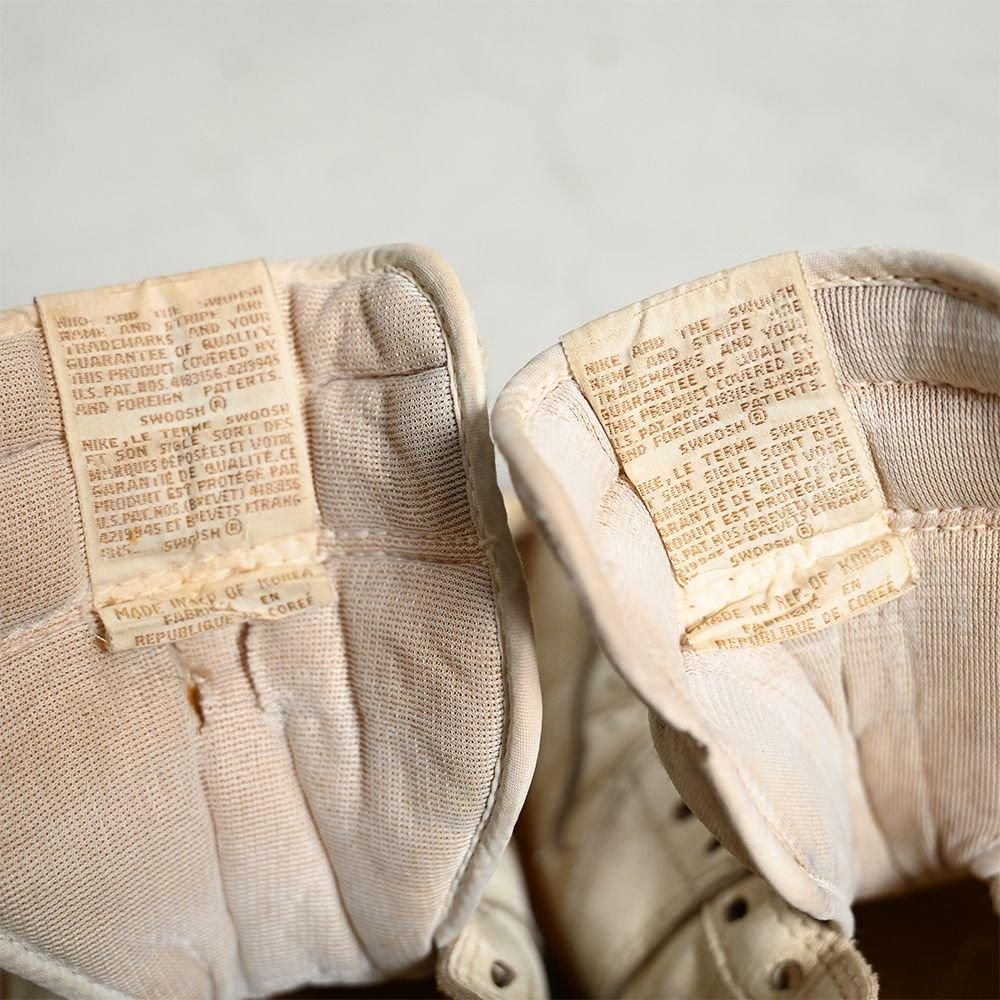 NIKE AND THE SWOOSH
NAME AND STRIPE ARE
TRADEMARKS AND YOUR
GUARANTEE OF QUALITY
THIS PRODUCT COVERED BY
U.S.PAT.NOS.4183156.4219945
AND FOREIGN PATENTS.
SWOOSH ®
NIKE,LE TERME SWOOSH
ET SON SIGLE SORT DES
MARQUES DÉPOSÉES ET VOTRE
GARANTIE DE QUALITÉ.CE
PRODUIT EST PROTÉGÉ PAR
U.S.PAT.NOS.(BREVET) 418956
4219945 ET BREVETS ETRANG-
SWOOSH ®
MADE IN REP OF KOREA
EN
REPUBLIQUE COREÉ
NIKE AND THE SWOOSH
NAME AND STRIPE ARE
TRADEMARKS AND YOUR
GUARANTEE OF QUALITY.
PRODUCT COVERED BY
PAT.NOS.4183156.4219945
FOREIGN PATENTS.
SWOOSH ®
LE TERME SWOOSH
SON SIGLE SORT DES
DÉPOSÉES ET VOTRE
DE QUALITÉ.CE
EST PROTÉGÉ PAR
ET BREVETS ETRANG
SWOOSH ®
MADE IN REP OF KOREA
FABRIQUE EN
REPUBLIQUE DE COREÉ